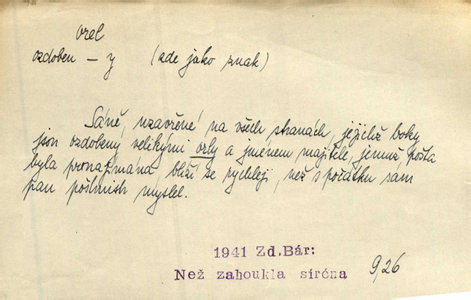 orel
ozdoben – y (zde jako znak)
Sáně, uzavřené na všech stranách, jejichž boky
jsou ozdobeny velikými orly a jménem majitele, jemuž pošta
byla pronajmuta, blíží se rychleji, než s počátku sám
pan poštmistr myslel.
1941 Zd.Bár:
Než zahoukla siréna 9,26